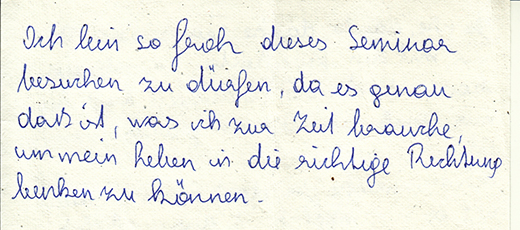 Ich bin so froh dieses Seminar
besuchen zu dürfen, da es genau
daß ist, was ich zur Zeit brauche,
um mein Leben in die richtige Richtung
lenken zu können.